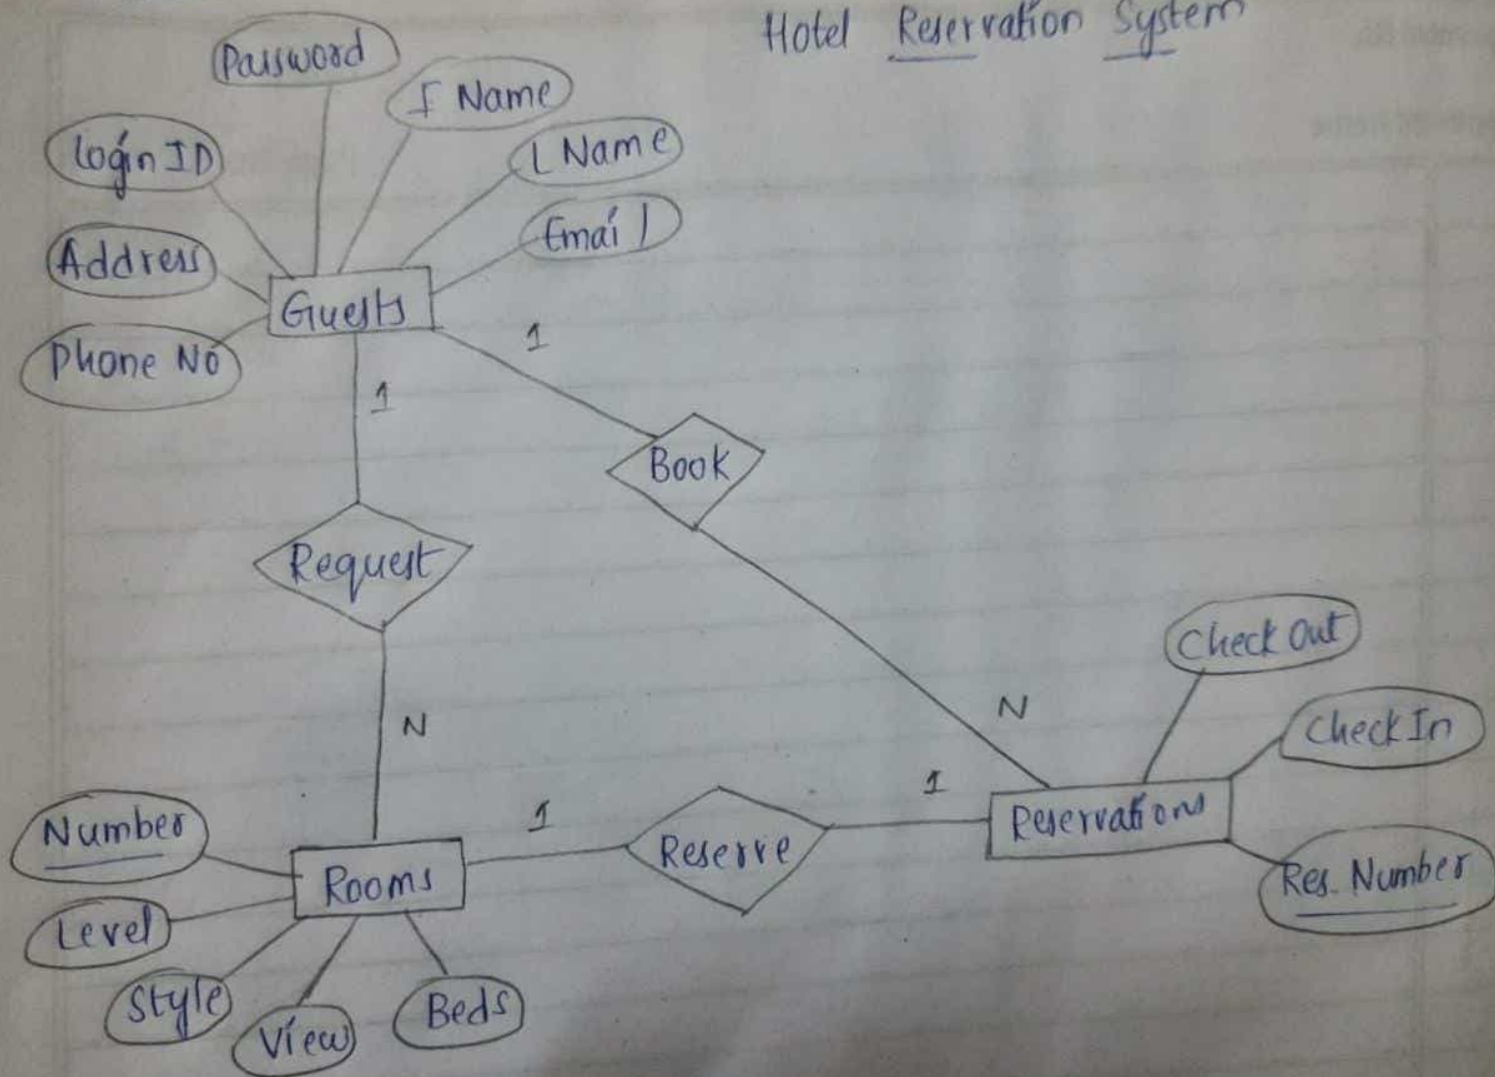 Hotel Reservation System
Password
F Name
L Name
Login ID
Email
Address
Guests
Phone No
1
1
Book
Request
Check Out
N
N
Check In
1
1
Number
Reserve
Reservations
Rooms
Res. Number
Level
Style
View
Beds